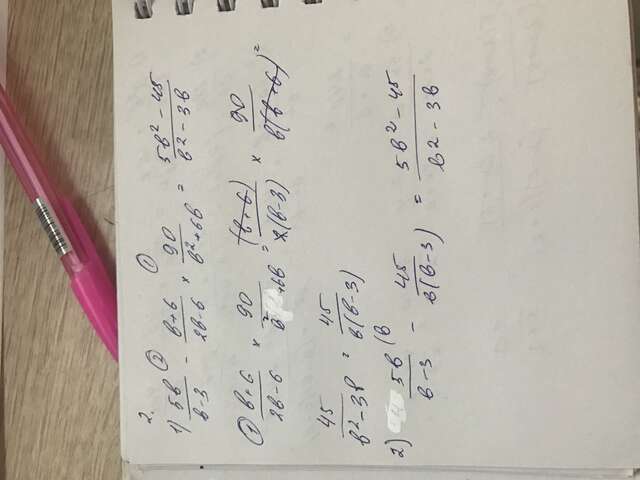 2.
② ①
1) 5в/в-3 - в+6/2в-6 × 90/в²+6в = 5в²-45/в²-3в
① в+6/2в-6 × 90/в²+6в = (в+6)/2(в-3) × 90/в(в+6) =
45/в²-3в = 45/в(в-3)
2) 5в/в-3 (в - 45/в(в-3) = 5в²-45/в²-3в